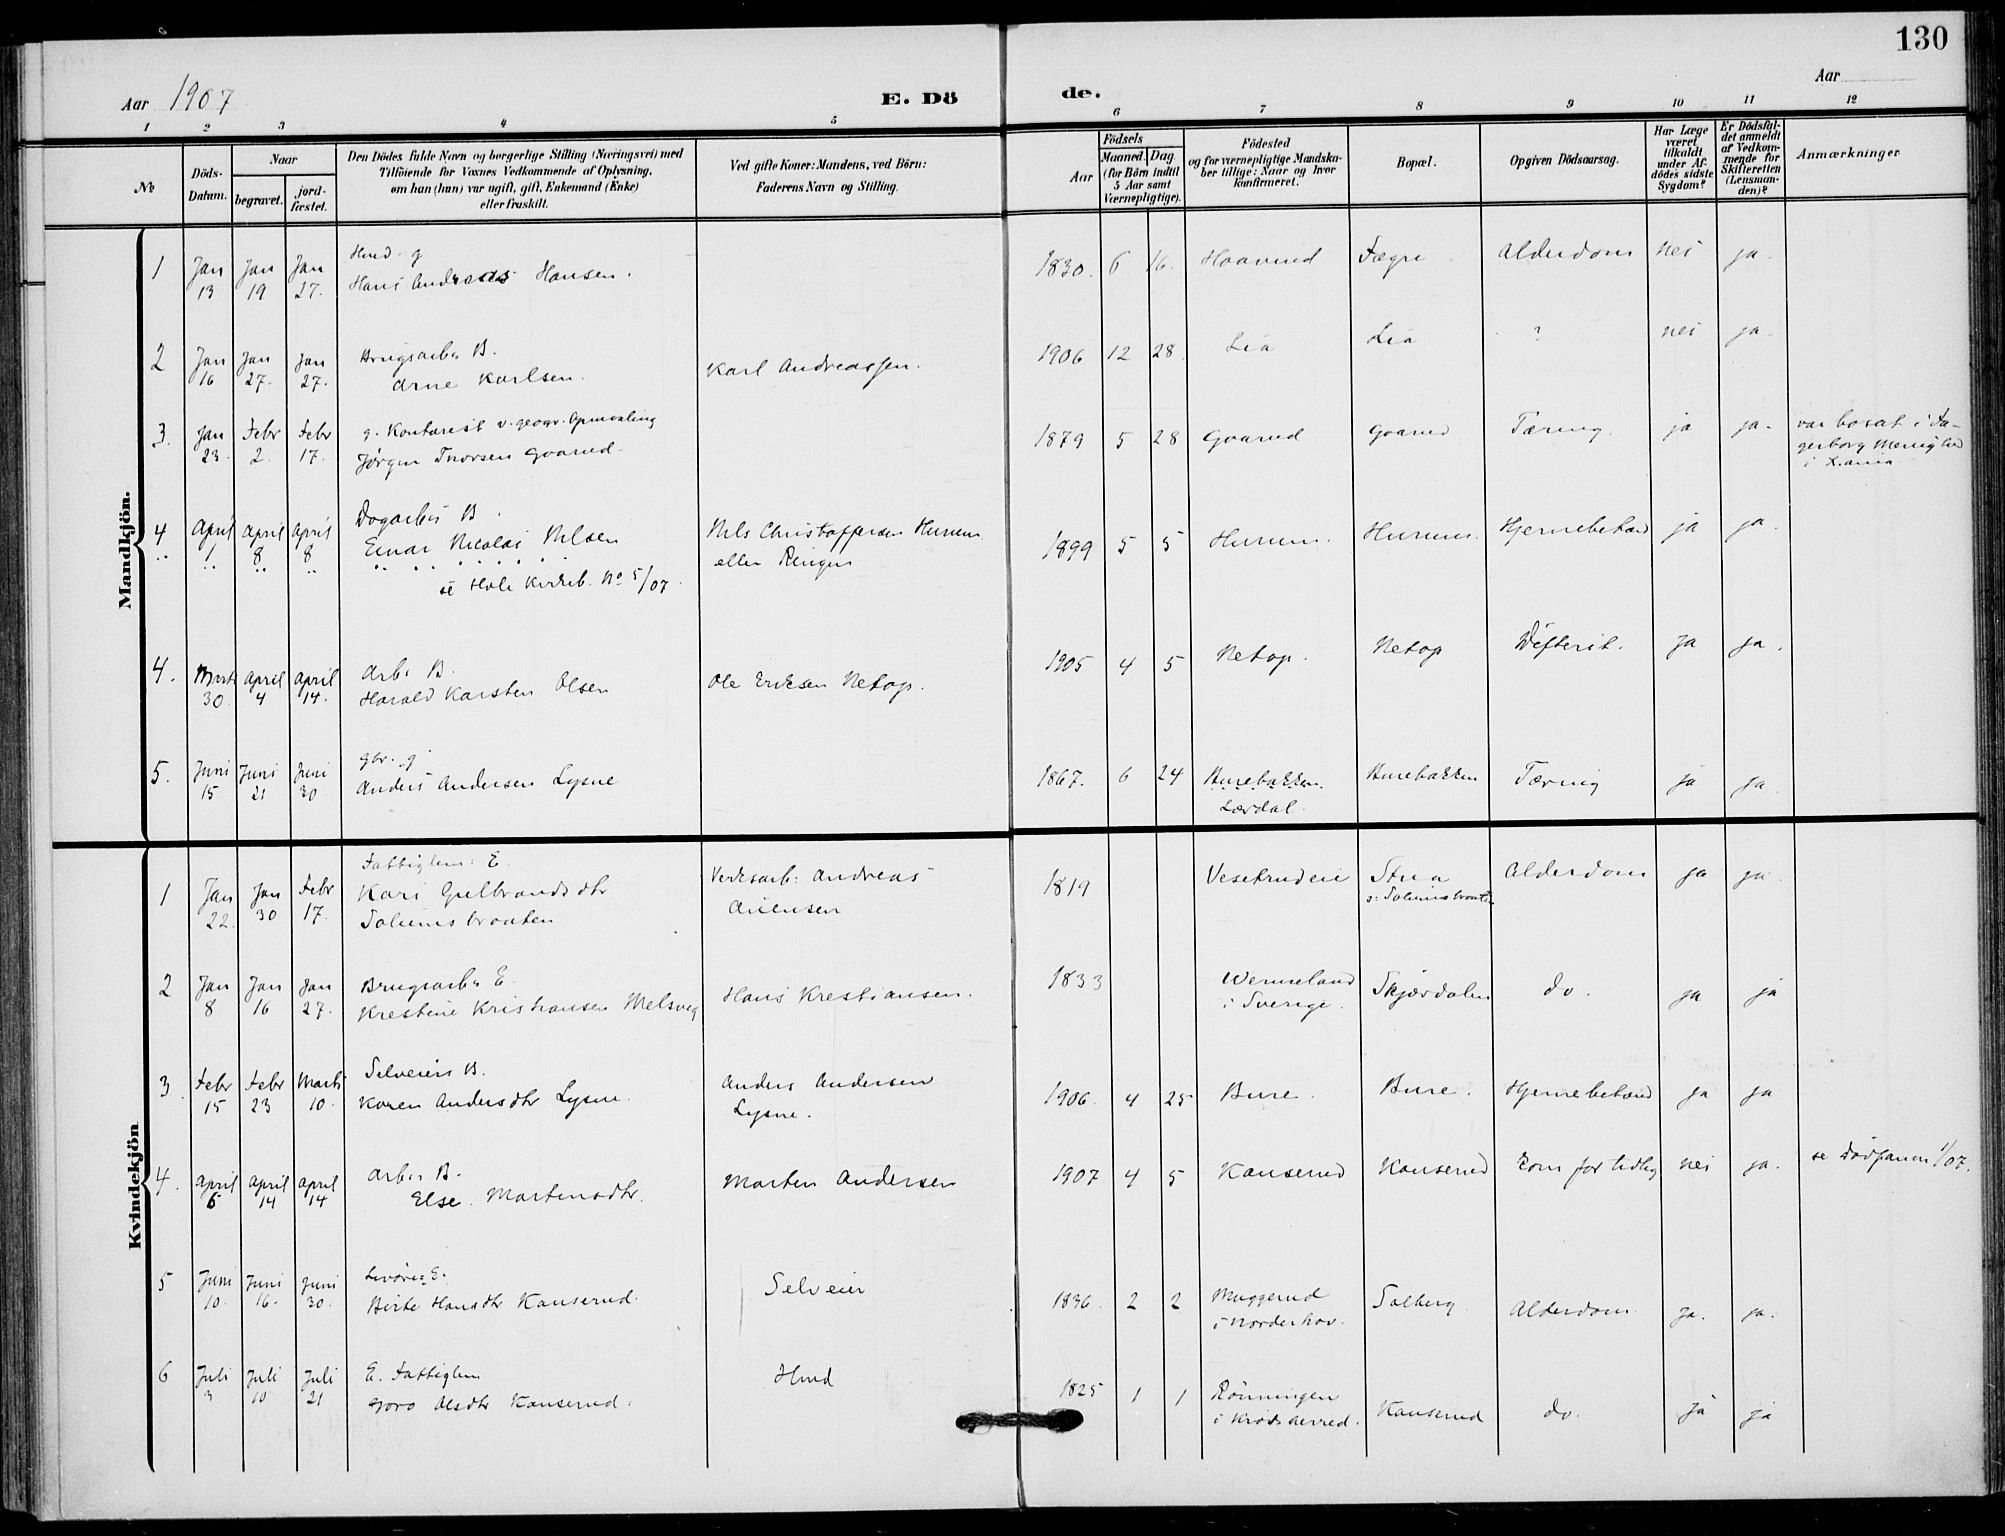 130
Aar 1907
E. Dö
de.
Aar
1 2 3 4 5 6 7 8 9 10 11 12
No
Döds-
Datum.
Naar
begravet.
jord-
fæstet.
Den Dödes fulde Navn og borgerlige Stilling (Næringsvei) med
Tilföiende for Voxnes Vedkommende af Oplysning,
om han (hun) var ugift, gift, Enkemand (Enke)
eller fraskilt.
Ved gifte Koner: Mandens, ved Börn:
Faderens Navn og Stilling.
Födsels
Aar
Maaned. Dag
(for Börn indtil
5 Aar samt
Værnepligtige).
Födested
og for værnepligtige Mandska-
ber tillige: Naar og hvor
konfirmeret.
Bopæl.
Opgiven Dödsaarsag.
Har Læge
været
tilkaldt
under Af-
dödes sidste
Sygdom?
Er Dödsfal-
det anmeldt
af Vedkom-
mende for
Skifteretten
(Lensman-
den)?
Anmærkninger
Mandkjön.
1 Jan 13 Jan 19 Jan 27. Hmd. g
Hans Andreas Hansen. 1830. 6 16. Haavrud Fægri Alderdom nei ja.
2 Jan 16 Jan 27. Jan 27. Brugsarb. B.
Arne Karlsen. Karl Andreassen. 1906 12 28 Lia Lia ? nei ja.
3. Jan 23. Febr 2. Febr 17. g. Kontorist v. geogr. Opmaaling
Jørgen Thorsen Gaarud. 1879 5 28 Gaarud Gaarud Tæring. ja ja. var bosat i Fa-
gerborg Menighed
i Xania
4 April 1 April 8 April 8 Dagarb. B.
Einar Nicolai Nilsen Nils Christoffersen Hurum
eller Ringen 1899 5 5 Hurum. Hurum. Hjernebetænd ja ja.
se Hole Kirkeb. No 5/07.
4. Marts 30 April 4 April 14. Arb. B.
Harald Karsten Olsen Ole Eriksen Netop. 1905 4 5 Netop. Netop Difterit. ja ja.
5. Juni 15 Juni 21 Juni 30 gbr. g
Anders Andersen Lysne 1867. 6 24 Burebakken
Lærdal. Burebakken Tæring ja ja
Kvindekjön
1 Jan 22. Jan 30 Febr 17. Fattiglem: E.
Kari Gulbrandsdtr
Solumsbraaten Verksarb: Andreas 1819 Vesetrudeie Stua
ɔ: Solumsbraaten Alderdom ja ja.
2 Jan 8 Jan 16 Jan 27. Brugsarb. E
Krestine Kristiansen Melsveg Hans Krestiansen. 1833 Wermeland
i Sverige. Skjærdalen do. ja ja
3 Febr 15 Febr 23 Marts 10. Selveiers B.
Karen Andersdtr Lysne. Anders Andersen
Lysne. 1906. 4 25 Bure. Bure. Hjernebetænd ja ja
4. April 6 April 14 April 14 Arb. B.
Else Martinsdtr. Martin Andersen 1907 4 5 Kanserud Kanserud Kom for tidlig nei ja. se 1/07.
5 Juni 10. Juni 16. Juni 30. E.
Birte Hansdtr Kanserud. Selveier 1836. 2 2 Muggerud
i Norderhov. Solberg Alderdom ja. ja.
6 Juli 3 Juli 10 Juli 21 E. Fattiglem
Goro Olsdtr Kanserud. Hmd 1825 1 1 Rönningen
i Krødsherred. Kanserud do. ja ja